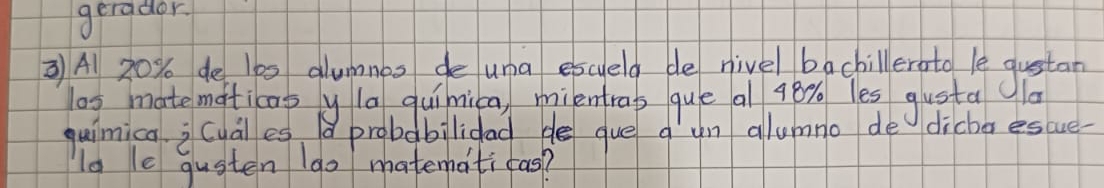 gerador.
3) Al 20% de los alumnos de una escuela de nivel bachillerato le gustan
las matemáticas y la química, mientras que al 48% les gusta la
química. ¿Cuál es la probabilidad de que a un alumno de dicha escue-
la le gusten las matemáticas?